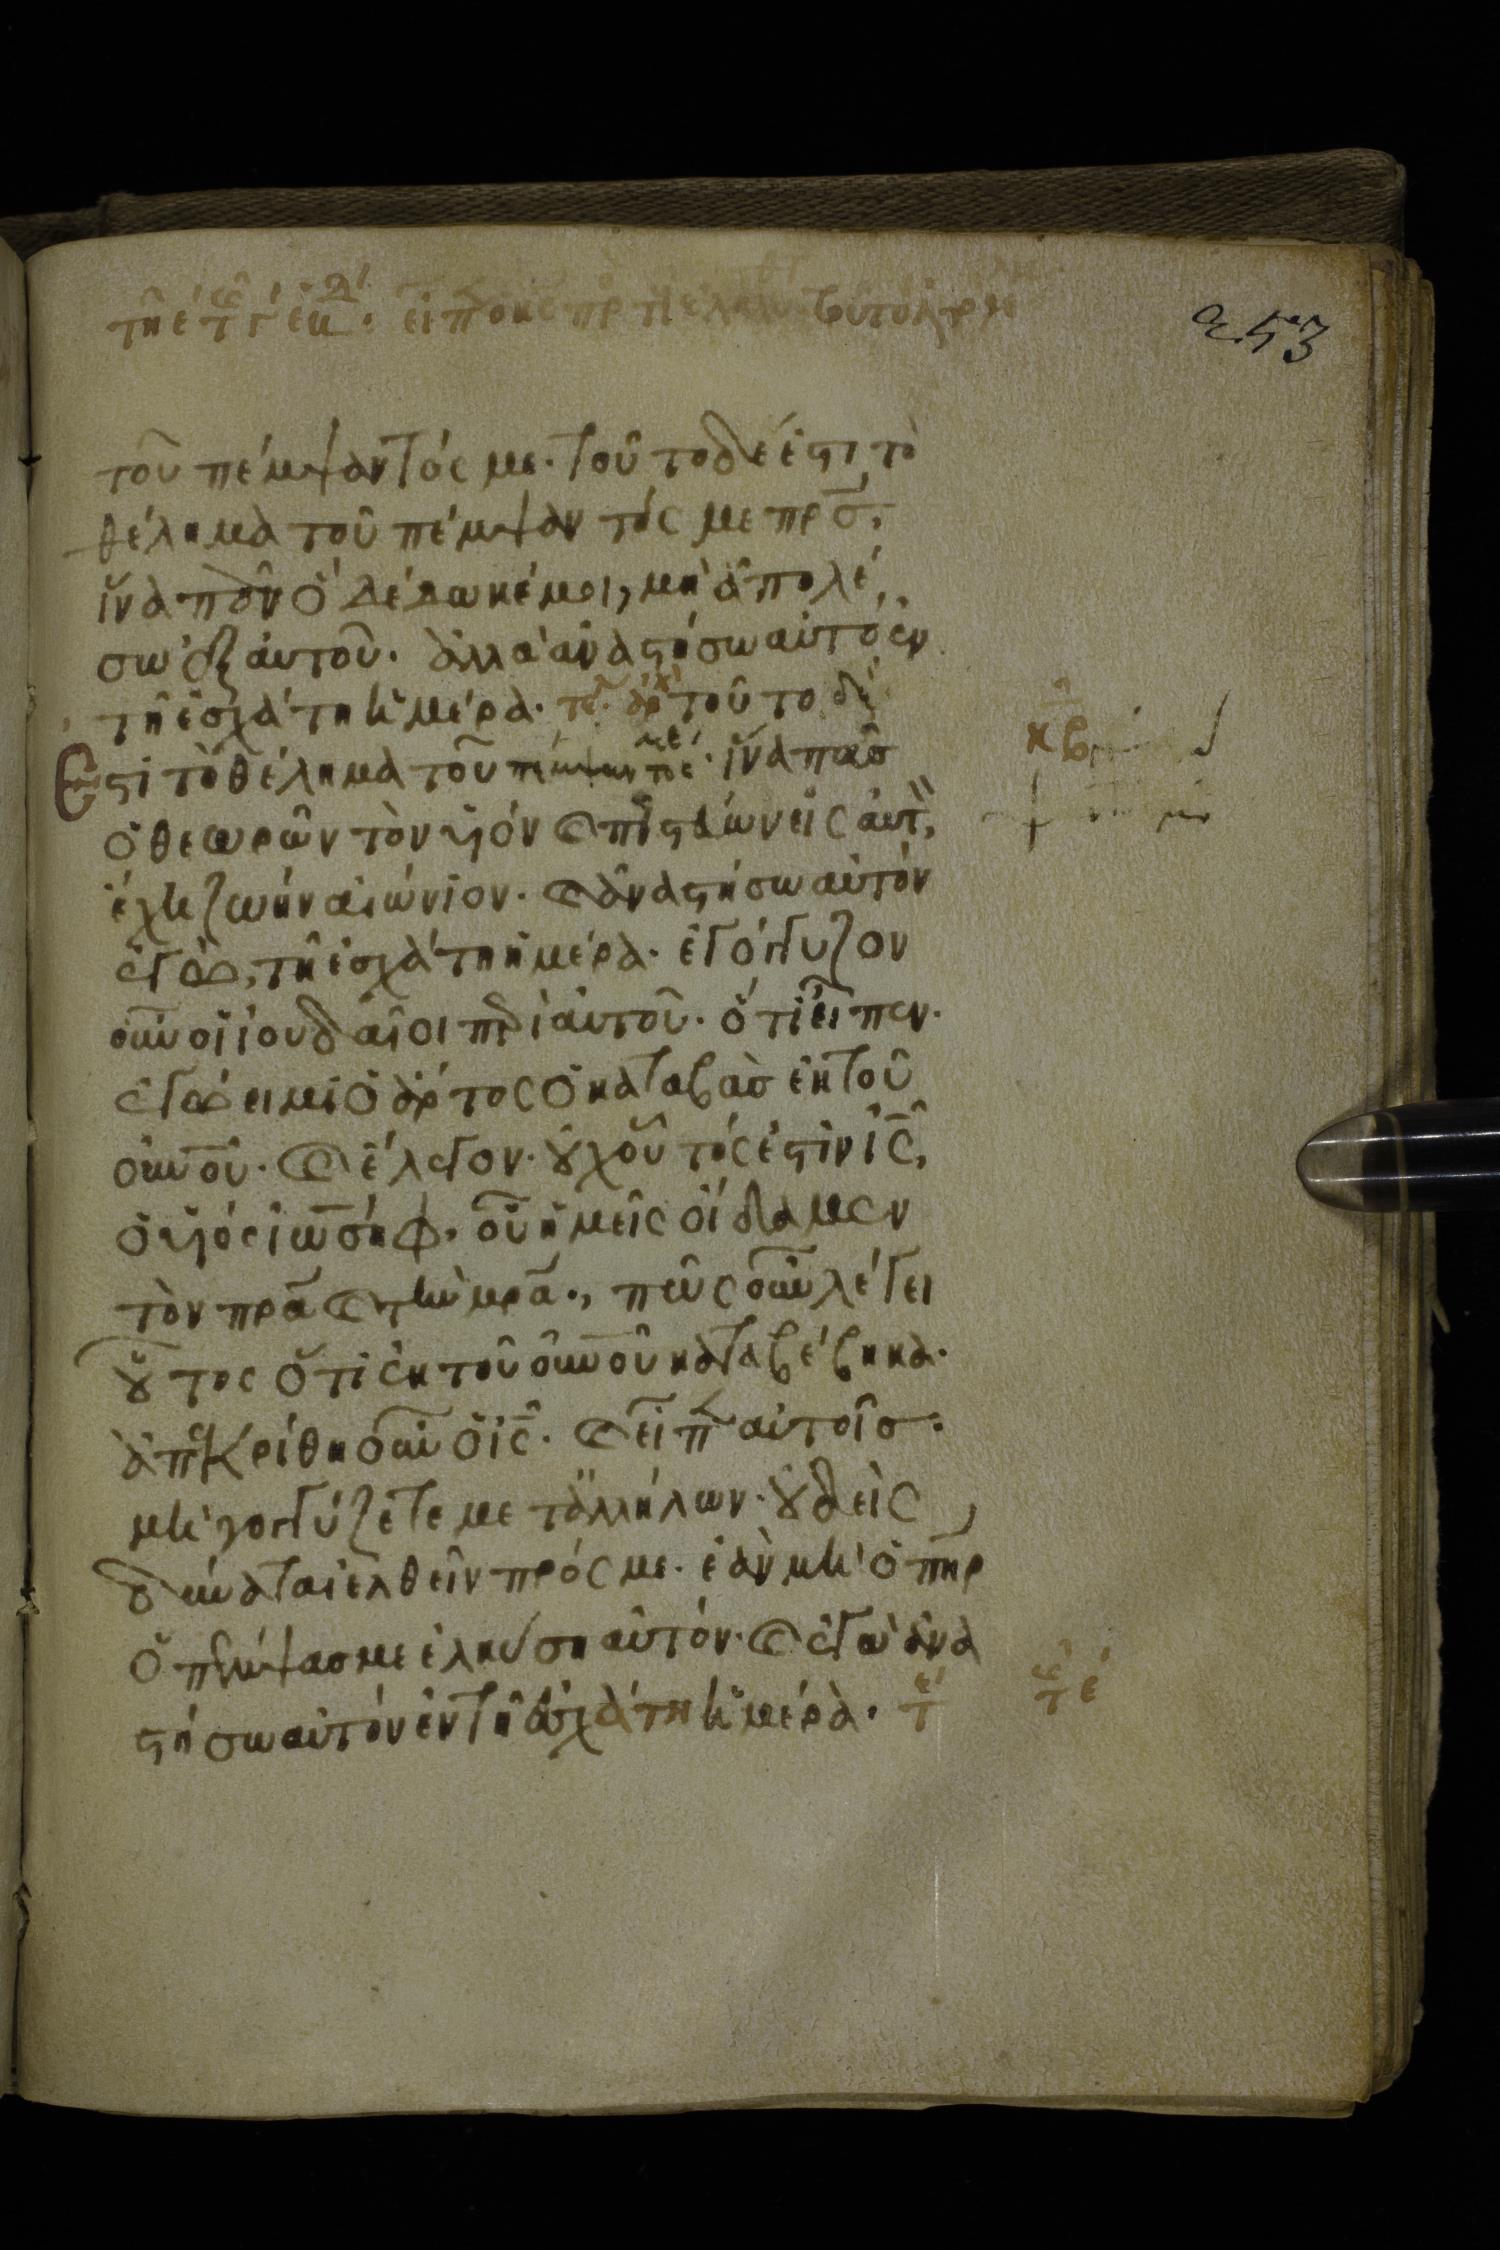 253
τοῦ πέμψαντός με. τοῦτο δέ ἐστι τὸ
θέλημα τοῦ πέμψαντός με πρσ,
ἵνα πᾶν ὃ δέδωκέ μοι, μὴ ἀπολέ
σω ἐξ αὐτοῦ. ἀλλὰ ἀναστήσω αὐτὸ ἐν
τῆ ἐσχάτη ἡμέρα. τε. ἀρχ τοῦτο δέ
Ἐστι τὸ θέλημα τοῦ πέμψαντός με. ἵνα πᾶσ
ὁ θεωρῶν τὸν υἱόν καὶ πιστεύων εἰς αὐτ,
ἔχη ζωὴν αἰώνιον. καὶ ἀναστήσω αὐτὸν
ἐγὼ, τῆ ἐσχάτη ἡμέρα. ἐγόγγυζον
οὖν οἱ ἰουδαῖοι περὶ αὐτοῦ. ὅτι εἶπεν.
ἐγώ εἰμι ὁ ἄρτος ὁ καταβὰσ ἐκ τοῦ
οὐνοῦ. καὶ ἔλεγον. οὐχ οὗτός ἐστιν ἰς,
ὁ υἱός ἰωσήφ, οὗ ἡμεῖς οἴδαμεν
τὸν πρα καὶ τὴν μρα., πῶς οὖν λέγει
οὗτος ὅτι ἐκ τοῦ οὐνοῦ καταβέβηκα.
ἀπεκρίθη οὖν ὁ ἰς. καὶ εἶπ αὐτοῖσ.
μὴ γογγύζετε μετ' ἀλλήλων. οὐδεὶς
δύναται ἐλθεῖν πρός με. ἐὰν μὴ ὁ πηρ
ὁ πέμψασ με ἑλκύση αὐτόν. καὶ ἐγὼ ἀνα
στήσω αὐτόν ἐν τῆ ἐσχάτη ἡμέρα. τε